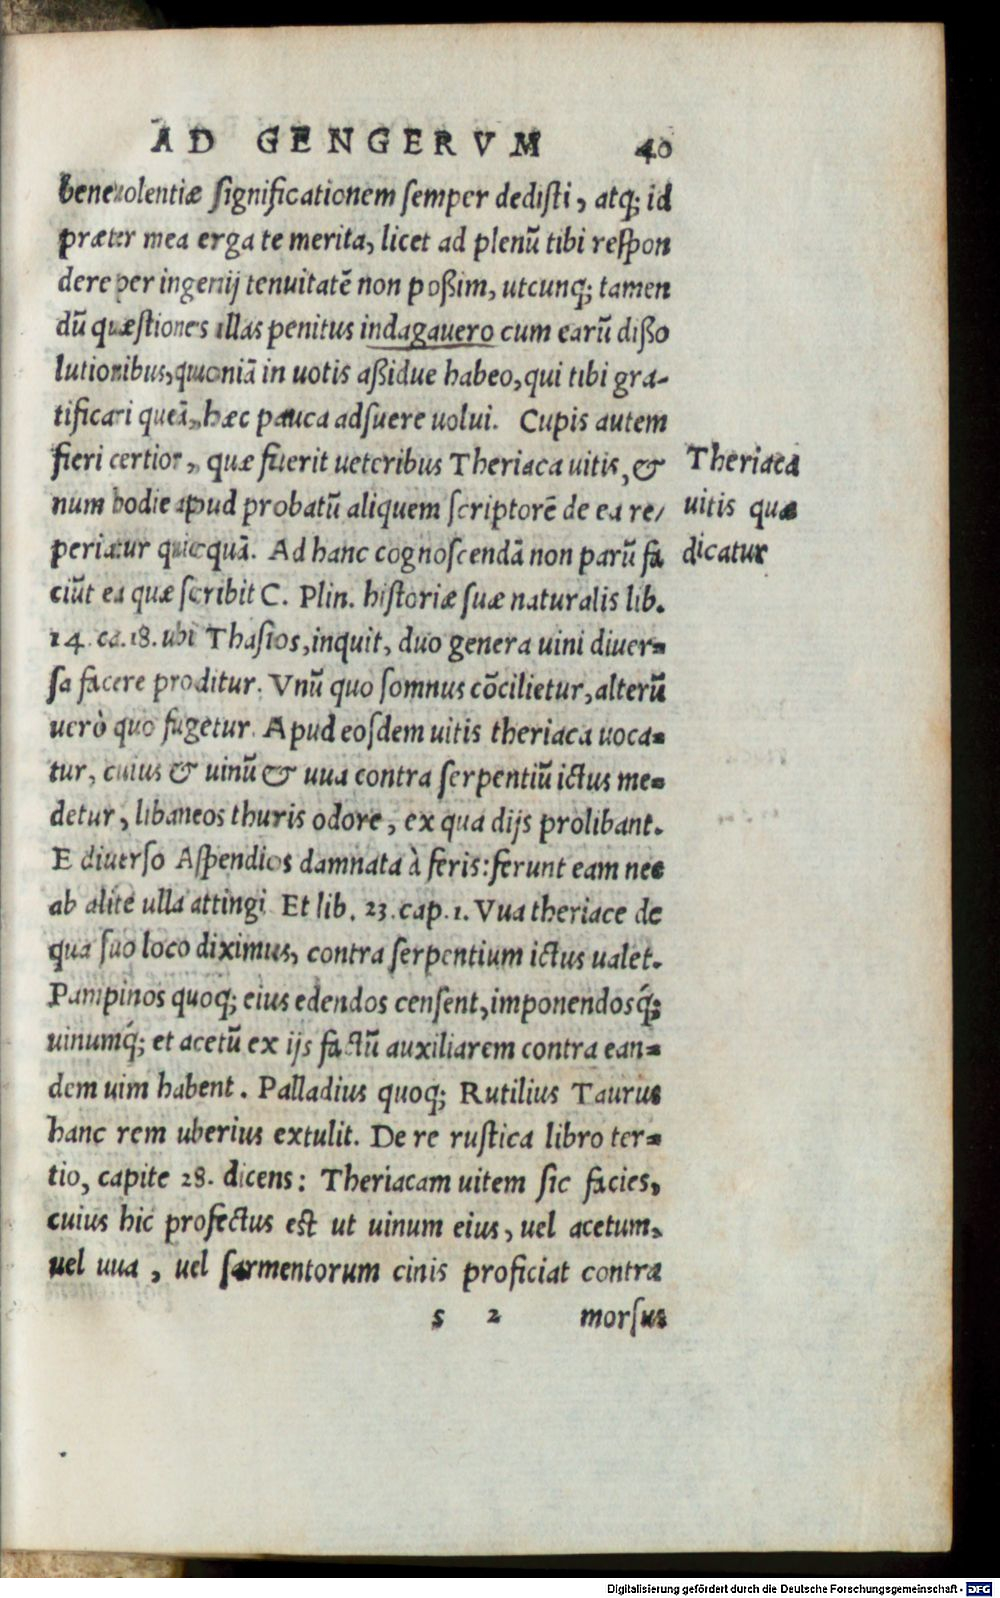 AD GENGERVM 40
beneuolentiæ ſignificationem ſemper dediſti, atq; id
præter mea erga te merita, licet ad plenũ tibi reſpon
dere per ingenij tenuitatẽ non poßim, utcunq; tamen
dũ quæſtiones illas penitus indagauero cum earũ dißo
lutionibus, quoniã in uotis aßidue habeo, qui tibi gra-
tificari queã, hæc pauca adſuere uolui. Cupis autem
fieri certior, quæ fuerit ueteribus Theriaca uitis, &
num hodie apud probatũ aliquem ſcriptorẽ de ea re/
periatur quicquã. Ad hanc cognoſcendã non parũ fa
ciũt ea quæ ſcribit C. Plin. hiſtoriæ ſuæ naturalis lib.
14. ca. 18. ubi Thaſios, inquit, duo genera uini diuer-
ſa facere proditur. Vnũ quo ſomnus cõcilietur, alterũ
uerò quo fugetur. Apud eoſdem uitis theriaca uoca-
tur, cuius & uinũ & uua contra ſerpentiũ ictus me-
detur, libaneos thuris odore, ex qua dijs prolibant.
E diuerſo Aſpendios damnata à feris: ferunt eam nec
ab alite ulla attingi. Et lib. 23. cap. 1. Vua theriace de
qua ſuo loco diximus, contra ſerpentium ictus ualet.
Pampinos quoq; eius edendos cenſent, imponendosq́;
uinumq́; et acetũ ex ijs factũ auxiliarem contra ean-
dem uim habent. Palladius quoq; Rutilius Taurus
hanc rem uberius extulit. De re ruſtica libro ter-
tio, capite 28. dicens: Theriacam uitem ſic facies,
cuius hic profectus eſt ut uinum eius, uel acetum,
uel uua, uel ſarmentorum cinis proficiat contra
s 2 morſus
Theriaca
uitis quæ
dicatur
Digitalisierung gefördert durch die Deutsche Forschungsgemeinschaft - DFG